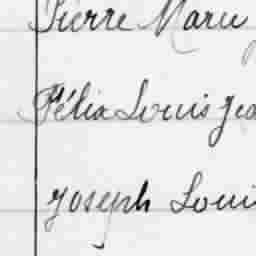 Pierre Marie
Félix Louis
Joseph Louis